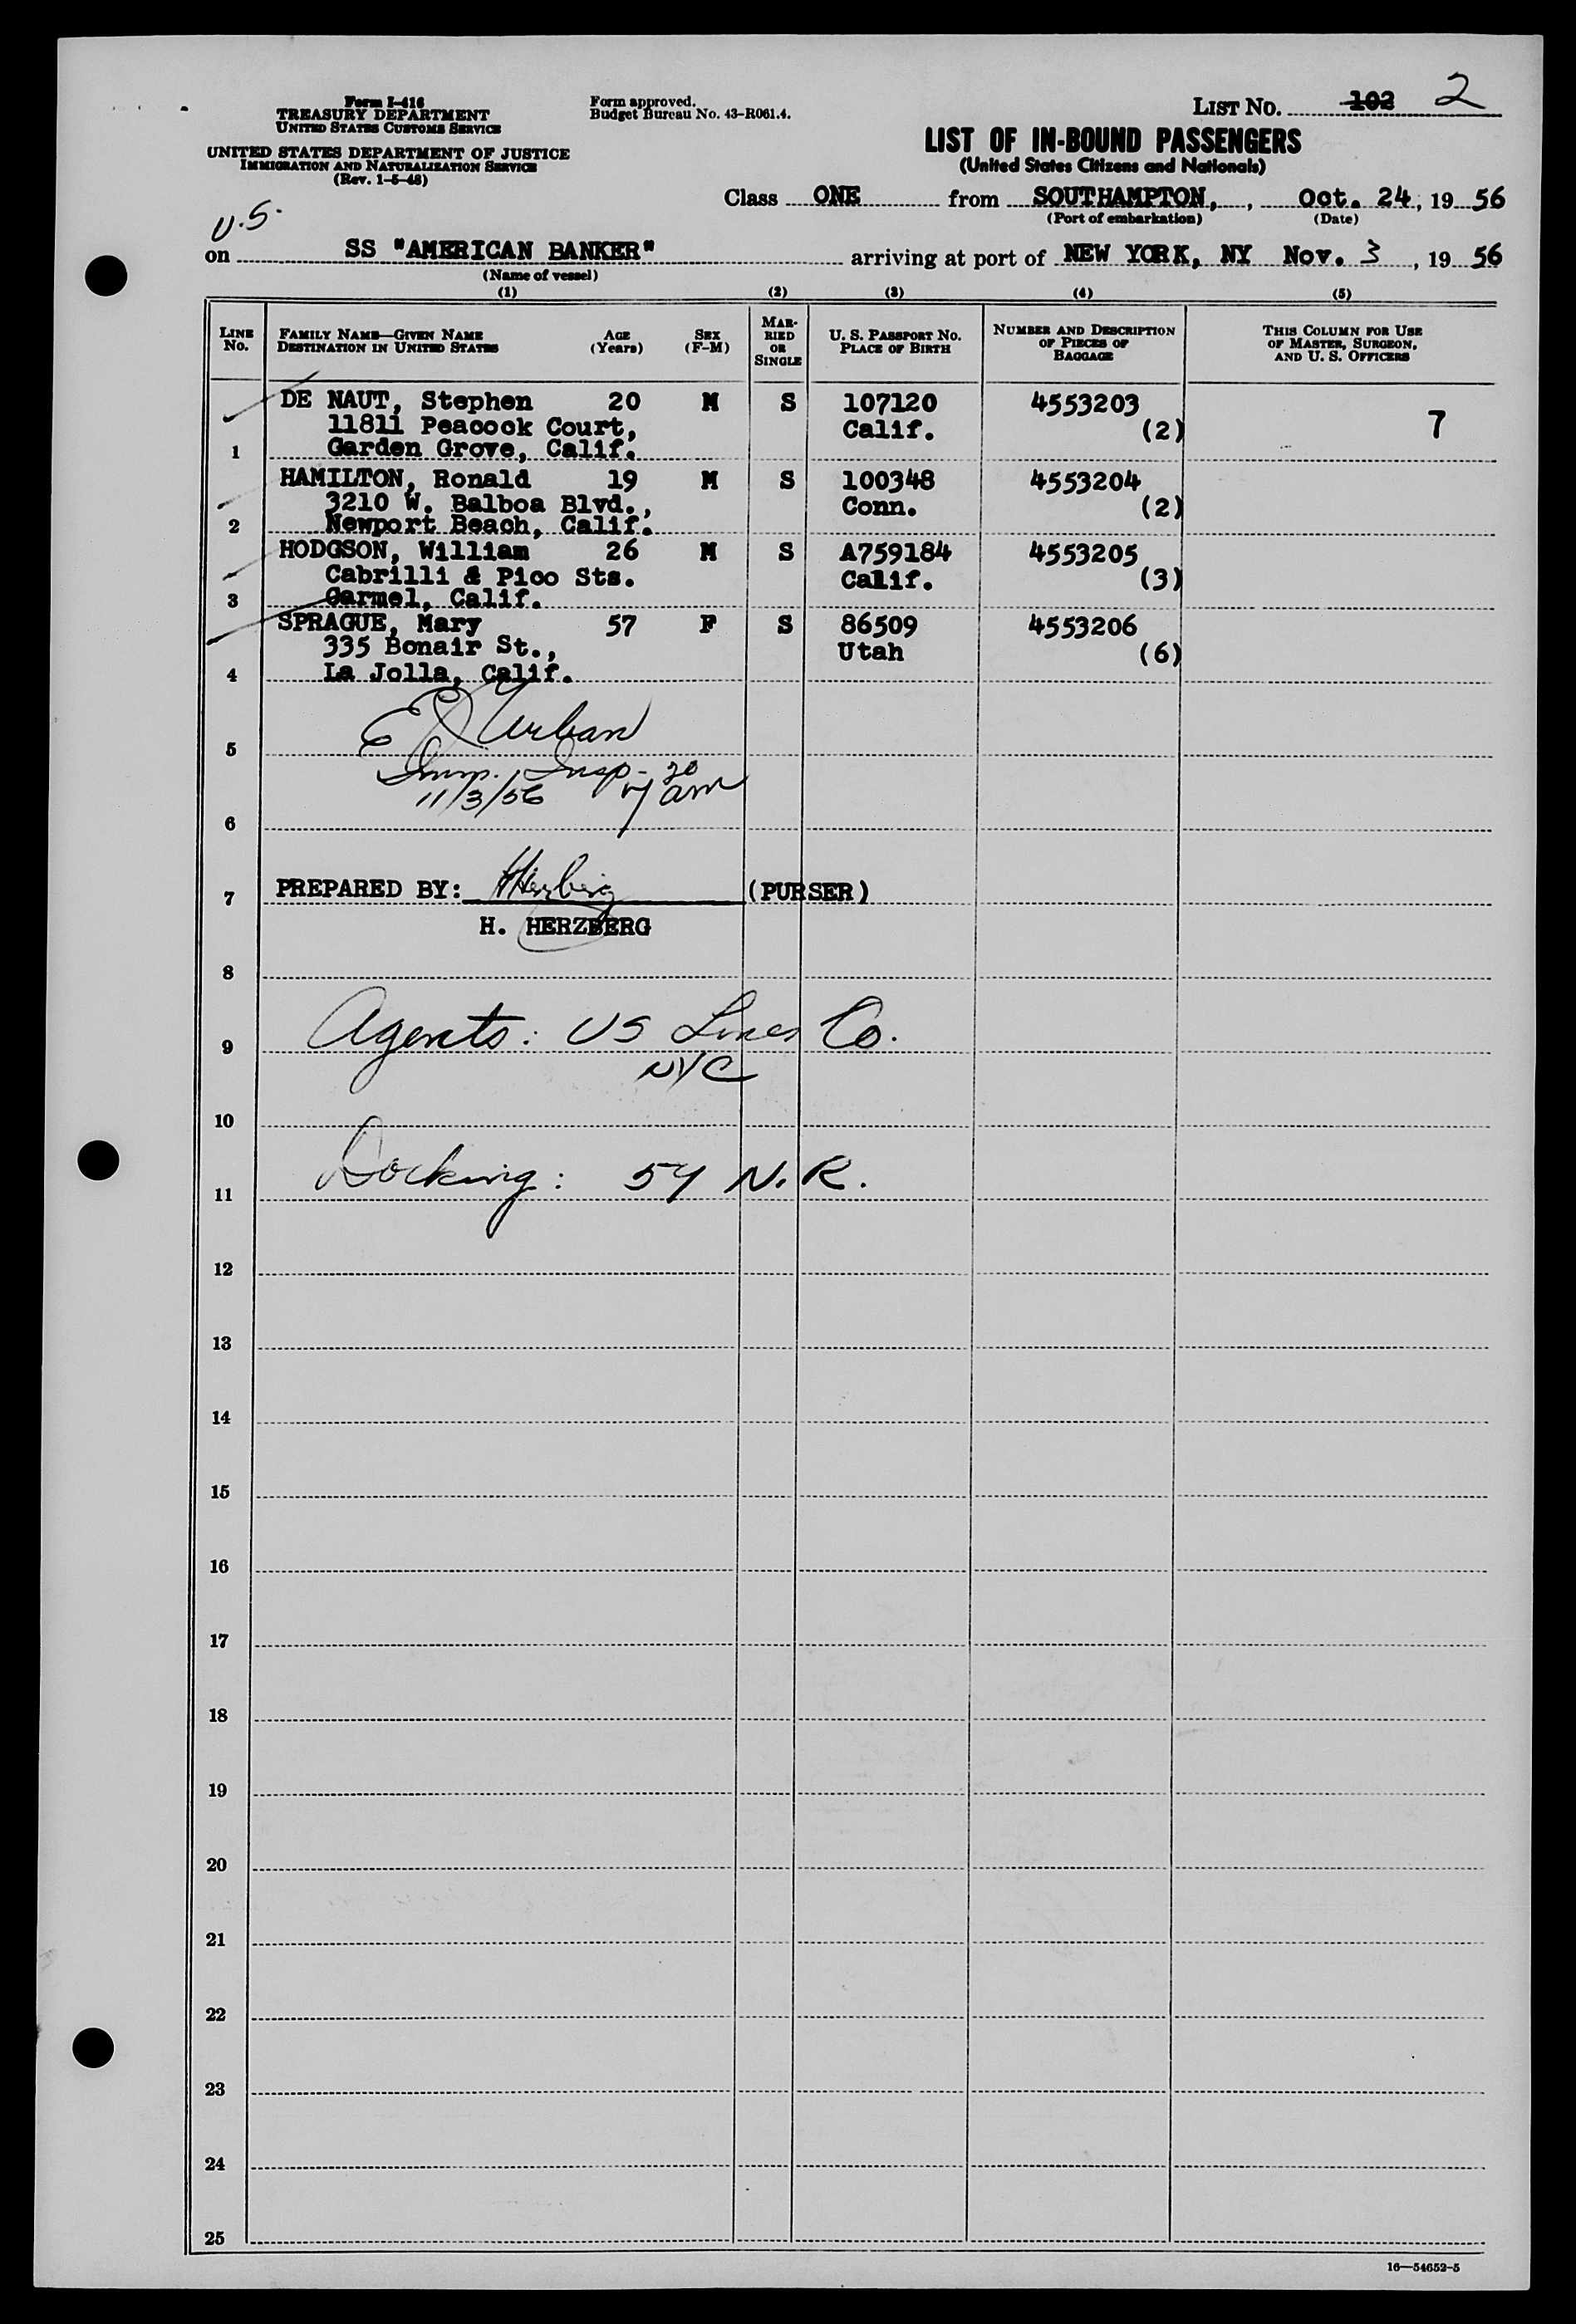 Form I-416
TREASURY DEPARTMENT
UNITED STATES CUSTOMS SERVICE
UNITED STATES DEPARTMENT OF JUSTICE
IMMIGRATION AND NATURALIZATION SERVICE
(Rev. 1-5-48)
Form approved.
Budget Bureau No. 43-R061.4.
LIST NO. 102 2
LIST OF IN-BOUND PASSENGERS
(United States Citizens and Nationals)
Class ONE from SOUTHAMPTON, , Oct. 24, 19 56
(Port of embarkation) (Date)
U.S.
on SS "AMERICAN BANKER" arriving at port of NEW YORK, NY Nov. 3, 19 56
(Name of vessel)
(1) (2) (3) (4) (5)
LINE NO.
FAMILY NAME—GIVEN NAME
DESTINATION IN UNITED STATES
AGE (Years)
SEX (F-M)
MARRIED OR SINGLE
U. S. PASSPORT NO.
PLACE OF BIRTH
NUMBER AND DESCRIPTION OF PIECES OF BAGGAGE
THIS COLUMN FOR USE OF MASTER, SURGEON, AND U. S. OFFICERS
DE NAUT, Stephen 20 M S 107120 4553203
11811 Peacock Court, Calif. (2) 7
1 Garden Grove, Calif.
HAMILTON, Ronald 19 M S 100348 4553204
3210 W. Balboa Blvd., Conn. (2)
2 Newport Beach, Calif.
HODGSON, William 26 M S A759184 4553205
Cabrilli & Pico Sts. Calif. (3)
3 Carmel, Calif.
SPRAGUE, Mary 57 F S 86509 4553206
335 Bonair St., Utah (6)
4 La Jolla, Calif.
Urban
5
Imm. Insp. 7 20 am
11/3/56
6
7 PREPARED BY: HHerzberg (PURSER)
H. HERZBERG
8
9 Agents: US Lines Co.
NYC
10
11 Docking: 54 N.R.
12
13
14
15
16
17
18
19
20
21
22
23
24
25
16—54652-5